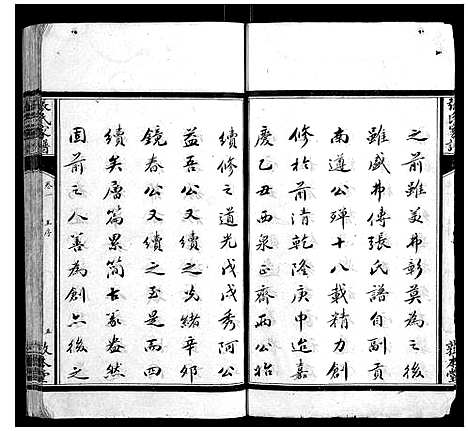 之前雖美弗彰莫為之後
雖盛弗傳張氏譜自副貢
南遵公殫十八載精力創
修於前清乾隆庚申迨嘉
慶乙丑西泉正齋兩公始
續修之道光戊戌秀阿公
益吾公又續之光緒辛卯
鏡春公又續之至是而四
續矣層篇累簡古篆盎然
固前之人善為創亦後之
張氏家譜
卷一
五